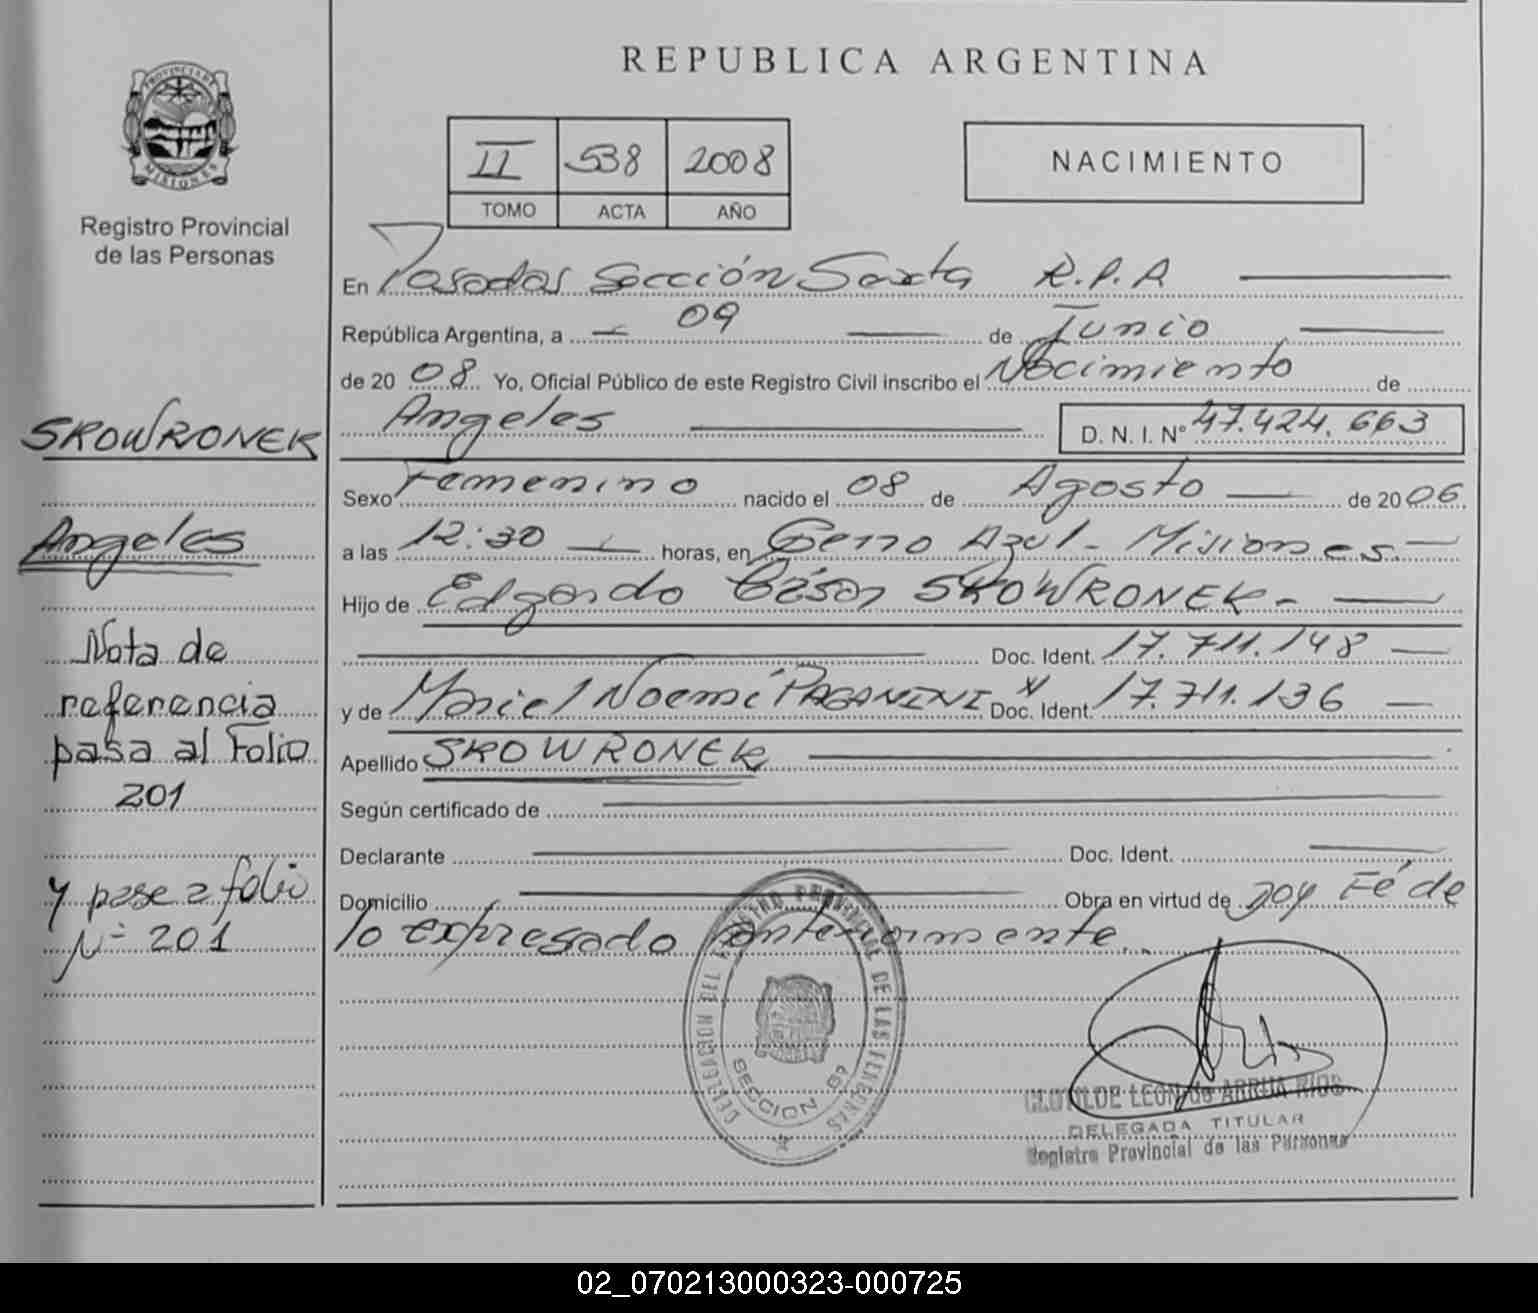 REPUBLICA ARGENTINA
PROVINCIA DE
MISIONES
Registro Provincial
de las Personas
II 538 2008
TOMO ACTA AÑO
NACIMIENTO
En Posadas Sección Sexta R.P.A
República Argentina, a 09 de Junio
de 2008 Yo, Oficial Público de este Registro Civil inscribo el Nacimiento de
Angeles D. N. I. Nº 47.424.663
Sexo Femenino nacido el 08 de Agosto de 2006
a las 12:30 horas, en Cerro Azul - Misiones.
Hijo de Edgardo César SKOWRONEK -
Doc. Ident. 17.711.148
y de Mariel Noemí PAGANINI Doc. Ident. 17.711.136
Apellido SKOWRONEK
Según certificado de
Declarante Doc. Ident.
Domicilio Obra en virtud de Doy Fé de
lo expresado anteriormente..
SKOWRONEK
Angeles
Nota de
referencia
pasa al Folio
201
y pase a folio
Nº 201
DELEGACION DEL REGISTRO PROVINCIAL DE LAS PERSONAS
SECCION 6ª
CLOTILDE LEON de ARRUA RIOS
DELEGADA TITULAR
Registro Provincial de las Personas
02_070213000323-000725